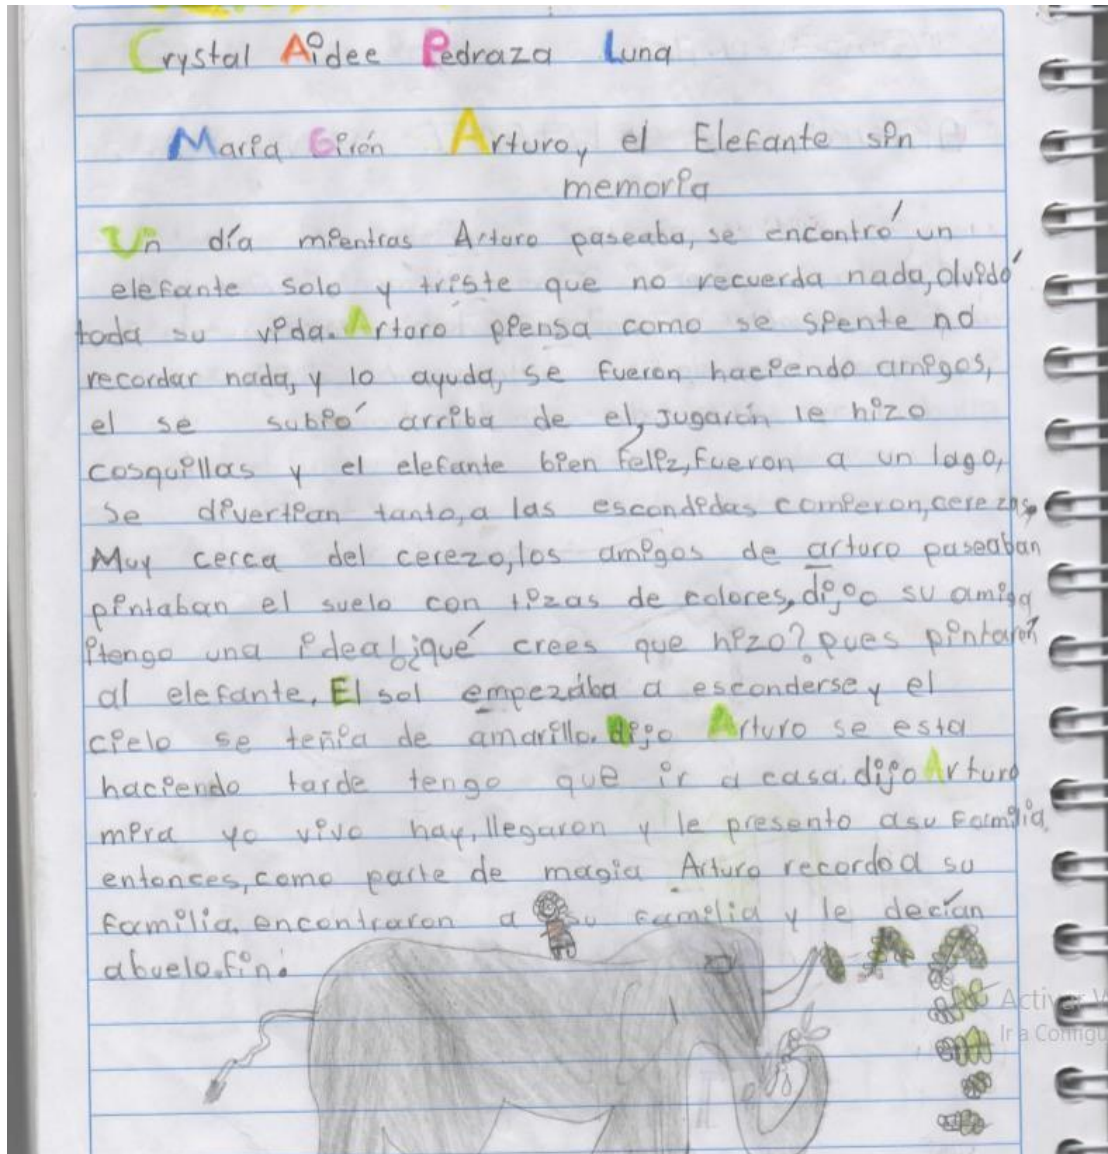 Crystal Aidee Pedraza Luna
Maria Girón Arturo, el Elefante sin
memoria
Un día mientras Arturo paseaba, se encontró un
elefante solo y triste que no recuerda nada, olvidó
toda su vida. Arturo piensa como se siente no
recordar nada, y lo ayuda, se fueron haciendo amigos,
el se subió arriba de el, jugarón le hizo
cosquillas y el elefante bien feliz, fueron a un lago,
se divertian tanto, a las escondidas comieron, cerezas,
Muy cerca del cerezo, los amigos de arturo paseaban
pintaban el suelo con tizas de colores, dijo su amiga
¡tengo una idea! ¿qué crees que hizo? pues pintarón
al elefante. El sol empezába a esconderse y el
cielo se teñia de amarillo. dijo Arturo se esta
haciendo tarde tengo que ir a casa. dijo Arturo
mira yo vivo hay, llegaron y le presento asu familia.
entonces, como parte de magia Arturo recordo a su
familia. encontraron a su familia y le decían
abuelo. fin.
Activar
Ir a Configu